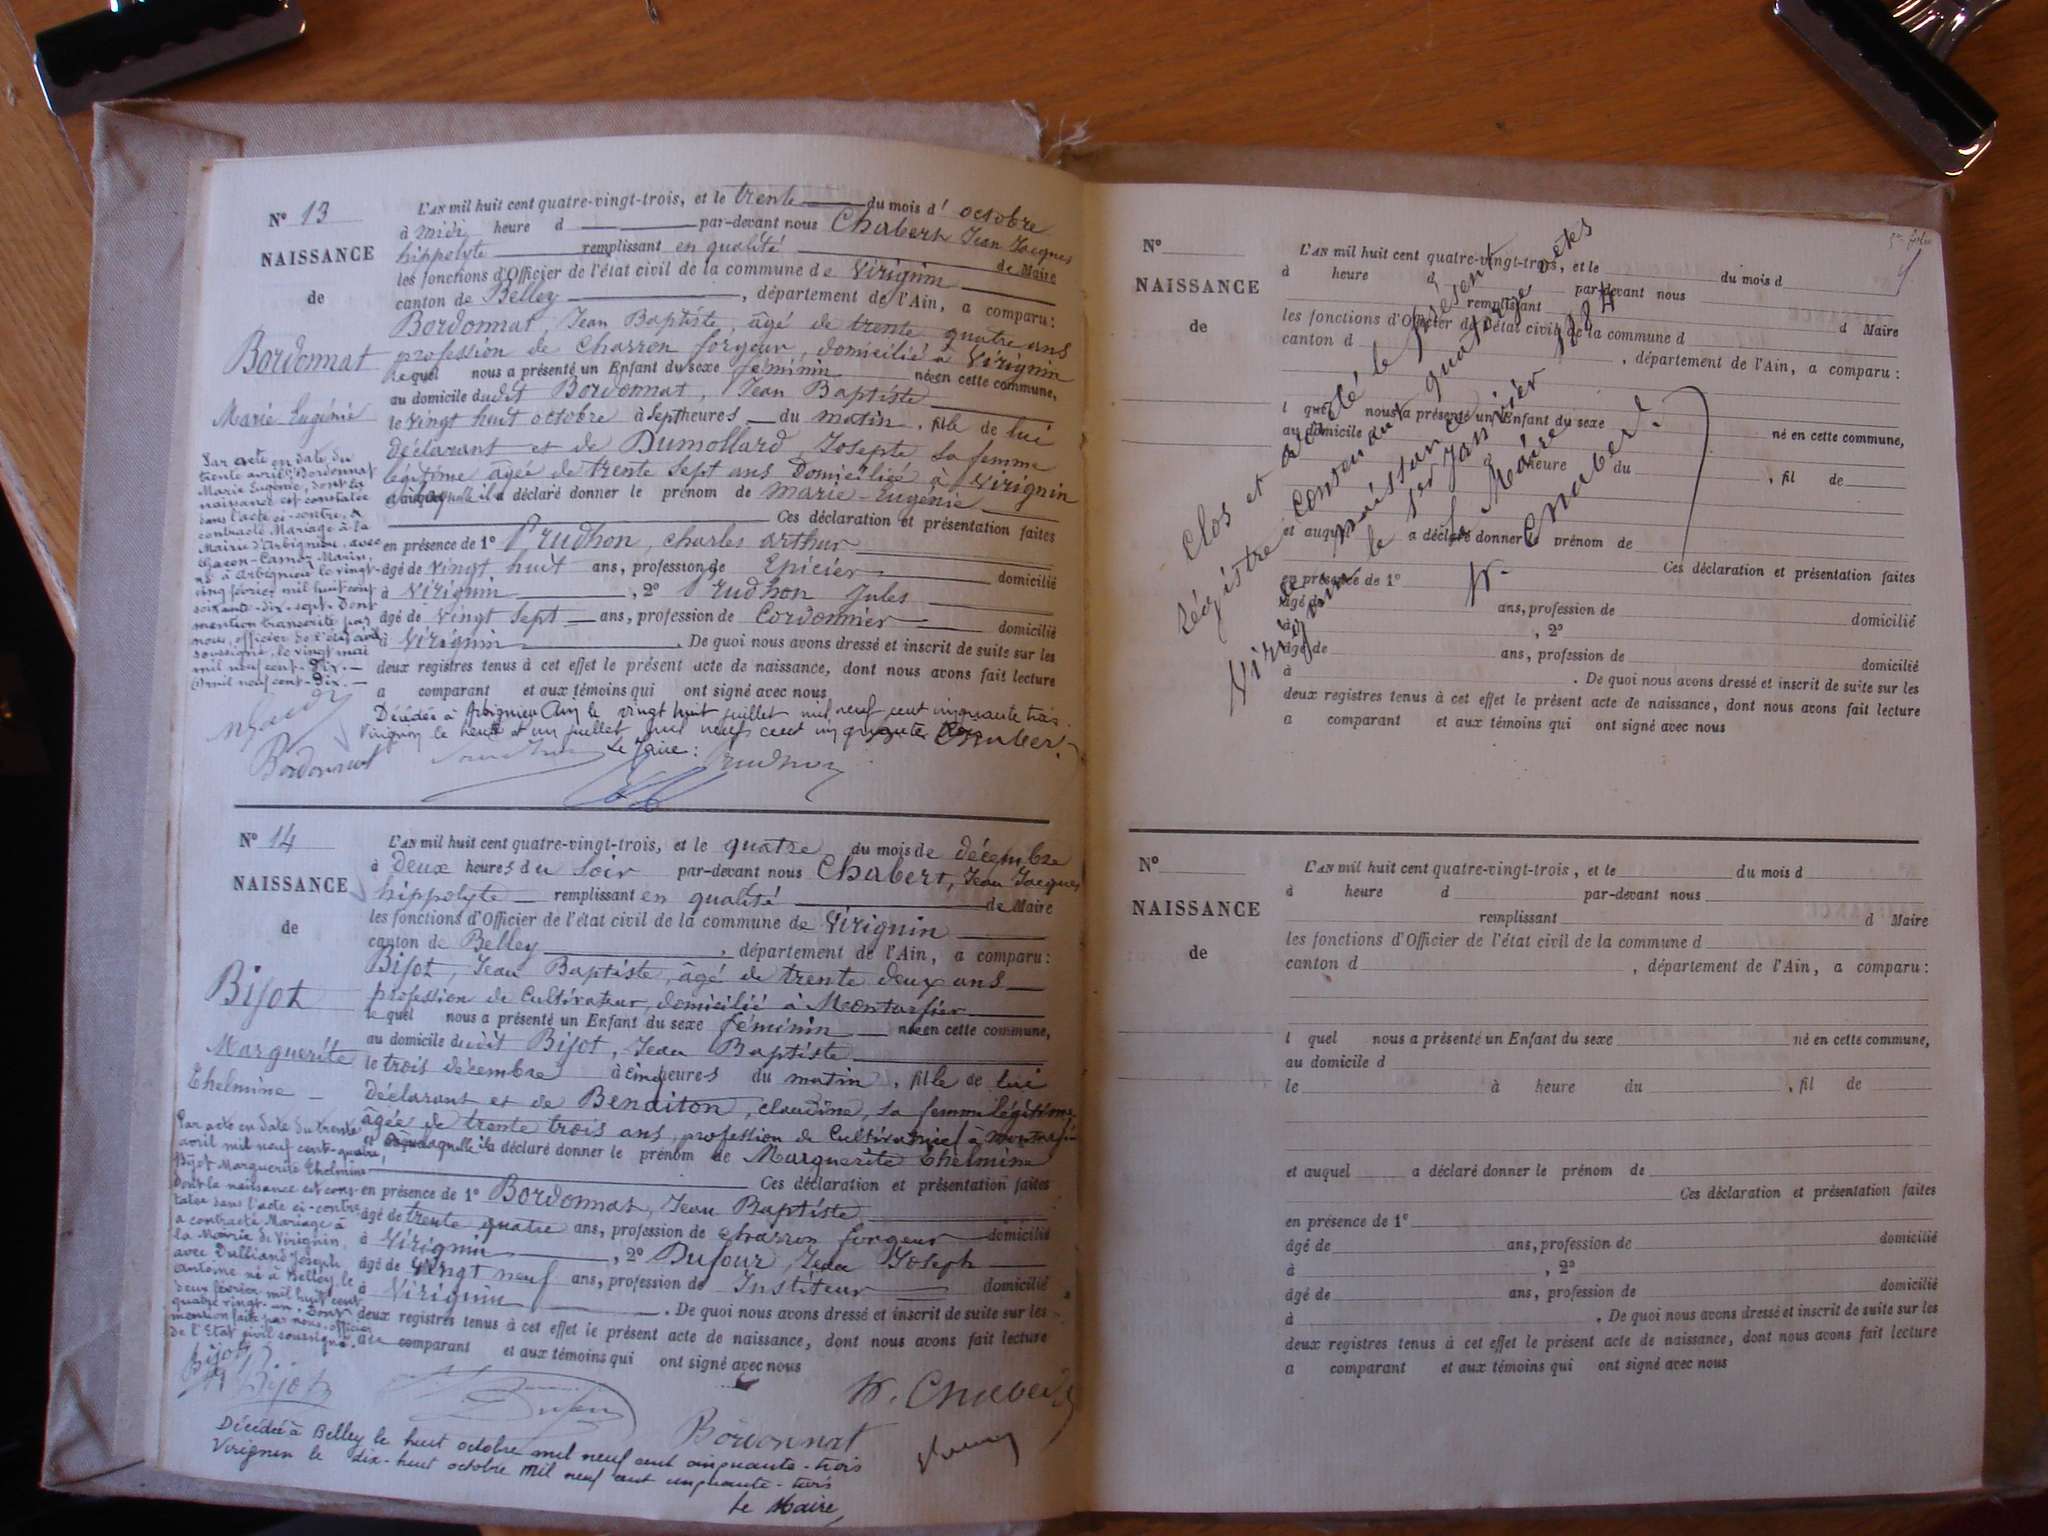 N° 13
NAISSANCE
de
Bordonnat
Marie Eugénie
L'AN mil huit cent quatre-vingt-trois, et le trente du mois d'octobre
à midi heure d par-devant nous Chabert Jean Jacques
hippolyte remplissant en qualité de Maire
les fonctions d'Officier de l'état civil de la commune de Virignin
canton de Belley, département de l'Ain, a comparu:
Bordonnat, Jean Baptiste, âgé de trente quatre ans
profession de charron forgeur, domicilié à Virignin
lequel nous a présenté un Enfant du sexe féminin né en cette commune,
au domicile dudit Bordonnat, Jean Baptiste
le vingt huit octobre à sept heures du matin, fille de lui
déclarant et de Dumollard, Josepte sa femme
légitime âgée de trente sept ans Domiciliée à Virignin
et à laquelle il a déclaré donner le prénom de Marie-Eugénie
Ces déclaration et présentation faites
en présence de 1° Prudhon, Charles arthur
âgé de vingt huit ans, profession de Epicier domicilié
à Virignin, 2° Prudhon Jules
âgé de vingt sept ans, profession de Cordonnier domicilié
à Virignin. De quoi nous avons dressé et inscrit de suite sur les
deux registres tenus à cet effet le présent acte de naissance, dont nous avons fait lecture
a comparant et aux témoins qui ont signé avec nous
Décédée à Arbignieu Ain le vingt huit juillet mil neuf cent cinquante trois
Virignin le trente et un juillet mil neuf cent cinquante trois
Le Maire:
Chabert
Bordonnat
Prudhon
Par acte en date du
trente avril, Bordonnat
Marie Eugénie, dont la
naissance est constatée
dans l'acte ci-contre, a
contracté Mariage à la
Mairie d'Arbignieu, avec
Marin,
né à Arbignieu le vingt-
cinq février mil huit cent
soixante-dix-sept. Dont
mention transcrite par
nous, officier de l'état civil
soussigné, le vingt mai
mil neuf cent-dix.
mil neuf cent-dix.
N° 14
NAISSANCE
de
Bijot
Marguerite
Thelmine
L'AN mil huit cent quatre-vingt-trois, et le quatre du mois de décembre
à Deux heures du soir par-devant nous Chabert, Jean Jacques
hippolyte remplissant en qualité de Maire
les fonctions d'Officier de l'état civil de la commune de Virignin
canton de Belley, département de l'Ain, a comparu:
Bijot, Jean Baptiste, âgé de trente deux ans
profession de Cultivateur, domicilié à Montarfier
lequel nous a présenté un Enfant du sexe féminin née en cette commune,
au domicile dudit Bijot, Jean Baptiste
le trois décembre à cinq heures du matin, fille de lui
Déclarant et de Benaiton, claudine, sa femme légitime
âgée de trente trois ans, profession de à Montarfier
et laquelle il a déclaré donner le prénom de Marguerite Thelmine
Ces déclaration et présentation faites
en présence de 1° Bordonnat, Jean Baptiste
âgé de trente quatre ans, profession de charron forgeur domicilié
à Virignin, 2° Dufour, Jean Joseph
âgé de vingt neuf ans, profession de Instituteur domicilié
à Virignin. De quoi nous avons dressé et inscrit de suite sur les
deux registres tenus à cet effet le présent acte de naissance, dont nous avons fait lecture
au comparant et aux témoins qui ont signé avec nous
Par acte en date du trente
avril mil neuf cent-quatre,
Bijot Marguerite Thelmine
dont la naissance est cons-
tatée dans l'acte ci-contre
a contracté Mariage à
la Mairie de Virignin,
avec Dulliand Joseph
antoine né à Belley, le
deux février mil huit cent
quatre vingt-un. Dont
mention faite par nous, officier
de l'Etat civil soussigné.
Bijot
H. Chabert
Bordonnat
Décédée à Belley le huit octobre mil neuf cent cinquante-trois
Virignin le dix-huit octobre mil neuf cent cinquante-trois
Le Maire
N°
NAISSANCE
de
L'AN mil huit cent quatre-vingt-trois, et le du mois d
à heure d par-devant nous
remplissant d Maire
les fonctions d'Officier de l'état civil de la commune d
canton d, département de l'Ain, a comparu:
l quel nous a présenté un Enfant du sexe né en cette commune,
au domicile d
à heure du, fil de
et auquel a déclaré donner le prénom de
Ces déclaration et présentation faites
en présence de 1°
âgé de ans, profession de domicilié
à, 2°
âgé de ans, profession de domicilié
à. De quoi nous avons dressé et inscrit de suite sur les
deux registres tenus à cet effet le présent acte de naissance, dont nous avons fait lecture
a comparant et aux témoins qui ont signé avec nous
Clos et arrêté le présent
régistre contenant quatorze actes
de naissance
Virignin le 1er Janvier 1884
Le Maire
H. Chabert
N°
NAISSANCE
de
L'AN mil huit cent quatre-vingt-trois, et le du mois d
à heure d par-devant nous
remplissant d Maire
les fonctions d'Officier de l'état civil de la commune d
canton d, département de l'Ain, a comparu:
l quel nous a présenté un Enfant du sexe né en cette commune,
au domicile d
le à heure du, fil de
et auquel a déclaré donner le prénom de
Ces déclaration et présentation faites
en présence de 1°
âgé de ans, profession de domicilié
à, 2°
âgé de ans, profession de domicilié
à. De quoi nous avons dressé et inscrit de suite sur les
deux registres tenus à cet effet le présent acte de naissance, dont nous avons fait lecture
a comparant et aux témoins qui ont signé avec nous